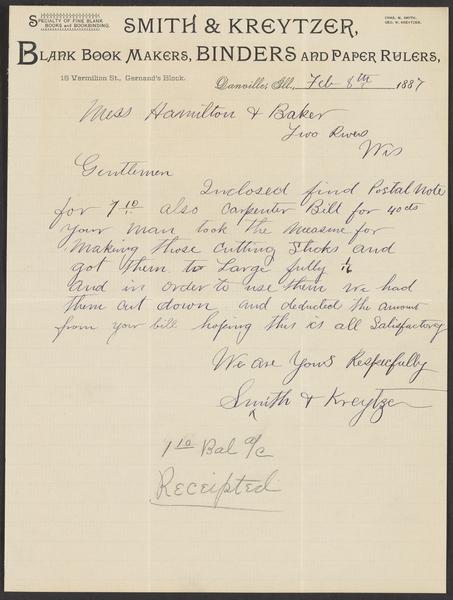 SPECIALTY OF FINE BLANK
BOOKS AND BOOKBINDING.
CHAS. M. SMITH.
GEO. W. KREYTZER.
SMITH & KREYTZER,
BLANK BOOK MAKERS, BINDERS AND PAPER RULERS,
15 Vermilion St., Gernand's Block.
Danville, Ill., Feb 8th 1887
Mess Hamilton & Baker
Two Rivers
Wis
Gentlemen
Inclosed find Postal Note
for 7 10 also Carpenter Bill for 40cts
your man took the measure for
Making those Cutting Sticks and
got them to Large fully 1/16
and in order to use them we had
them cut down and deducted the amount
from your bill hoping this is all Satisfactory
We are Yours Respecfully
Smith & Kreytzer
1 10 Bal a/c
Receipted